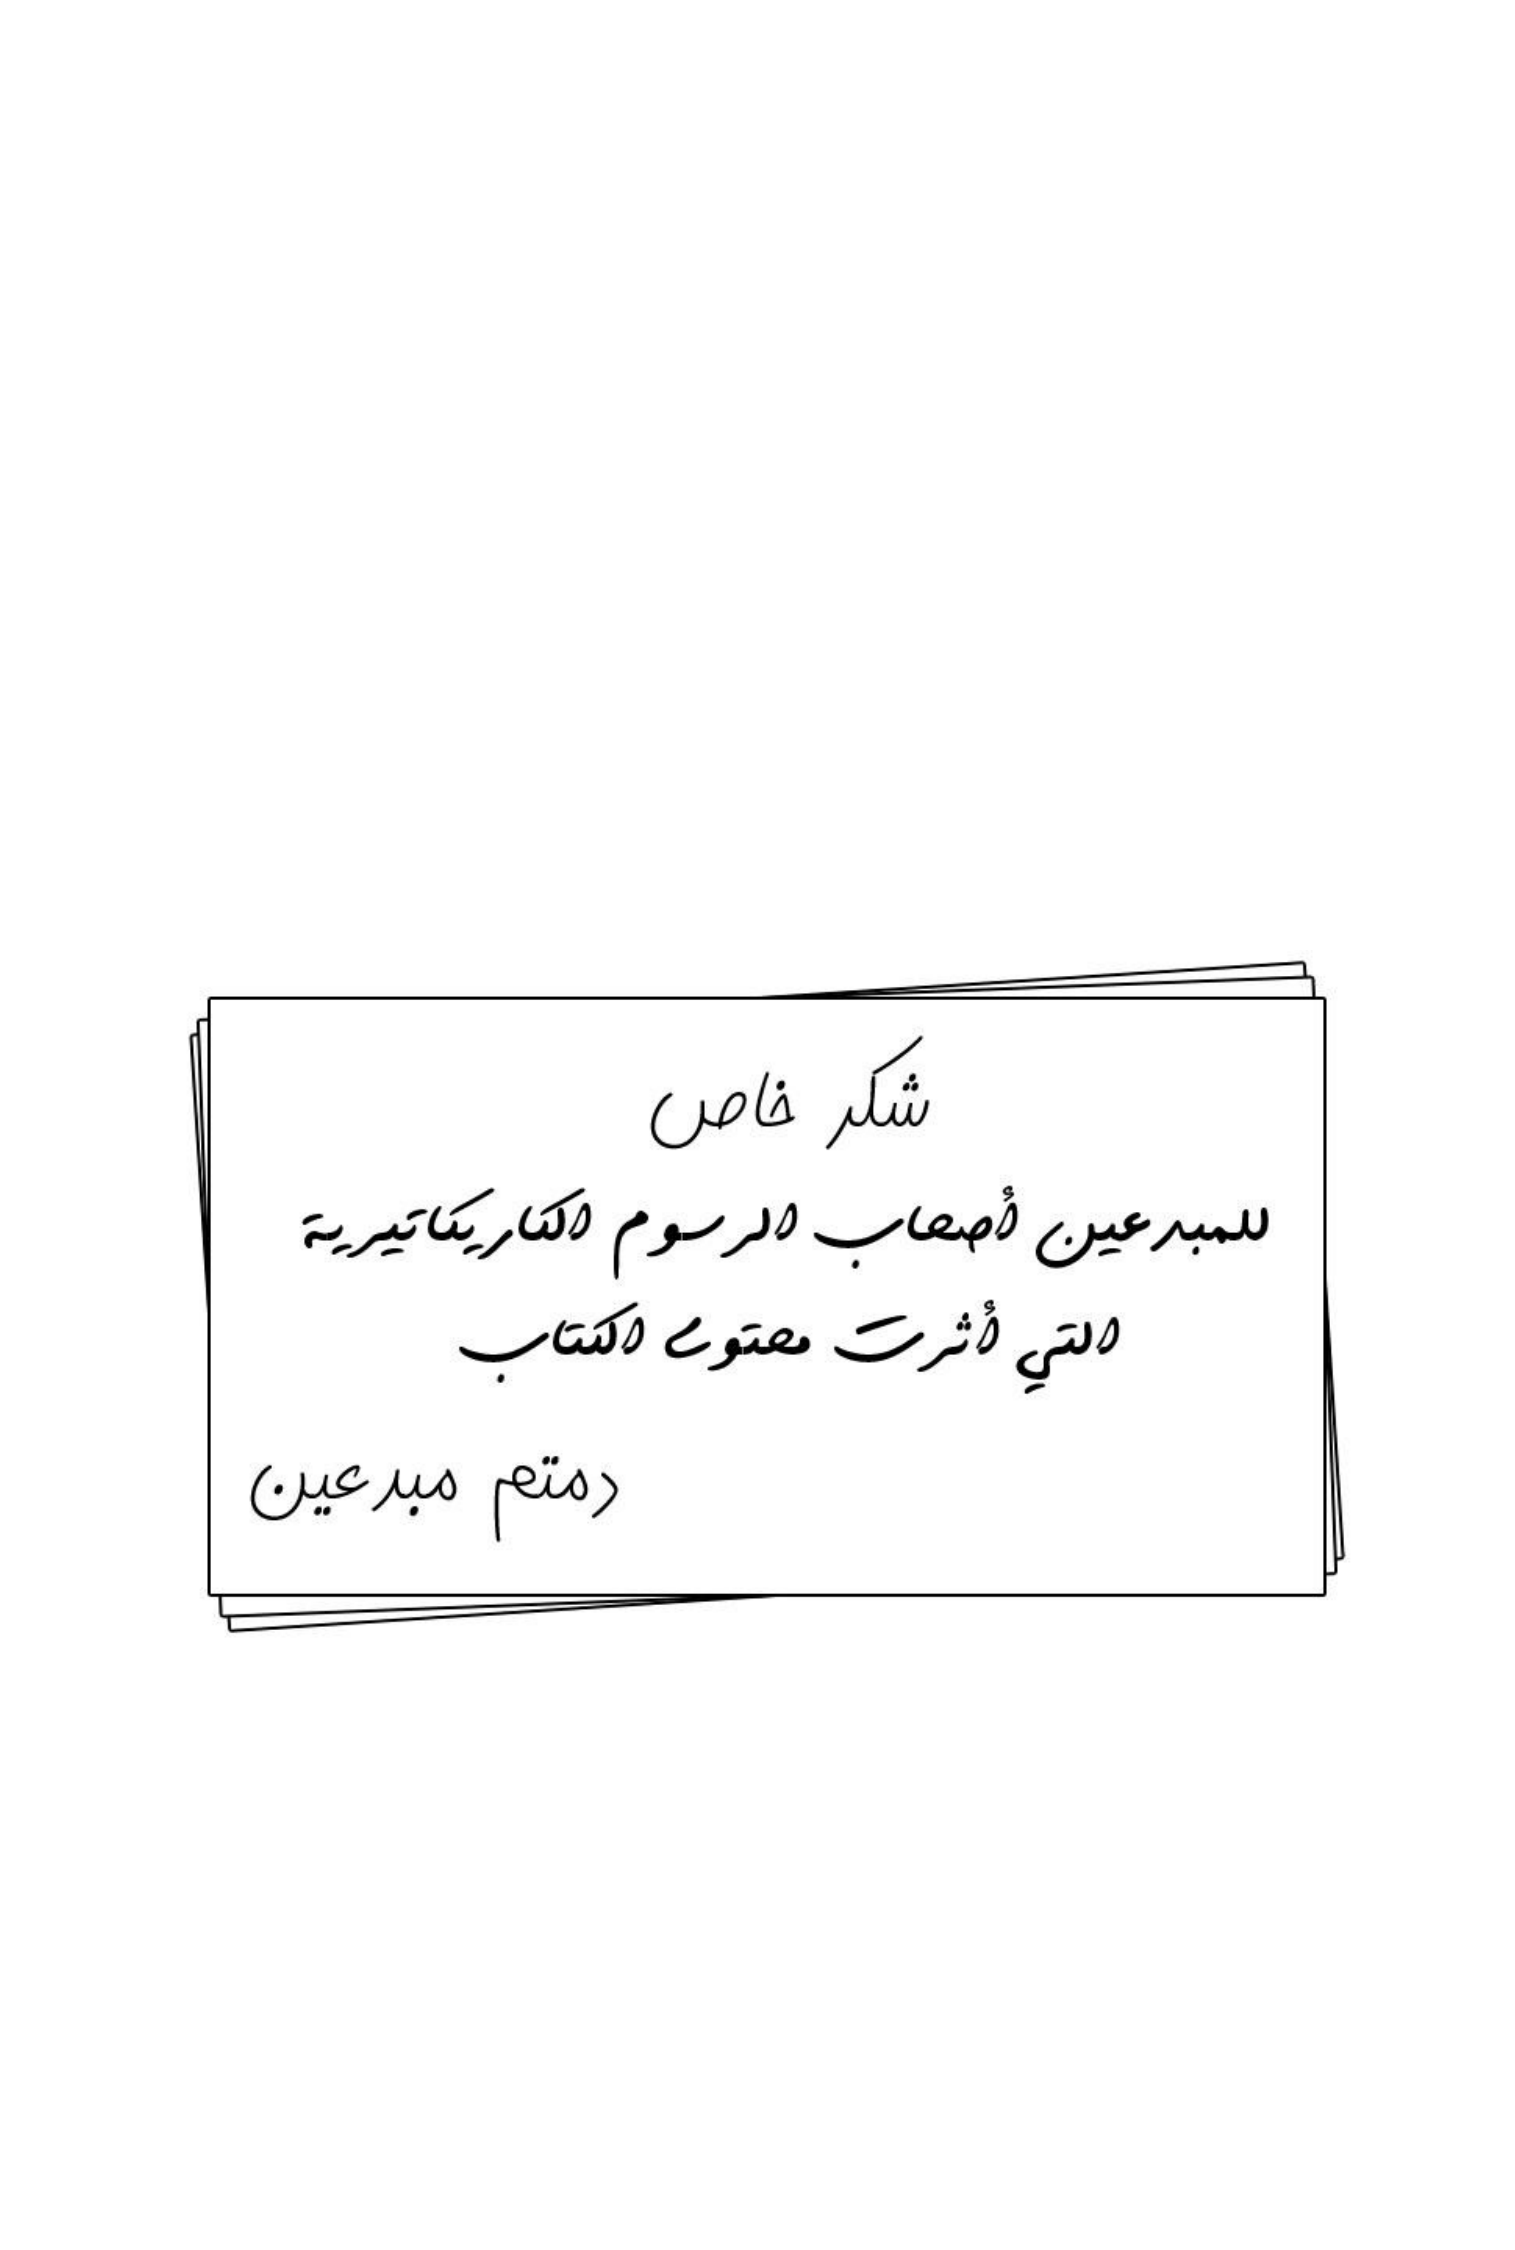 شكر خاص
للمبدعين أصحاب الرسوم الكاريكاتيرية
التي أثرت محتوى الكتاب
دمتم مبدعين